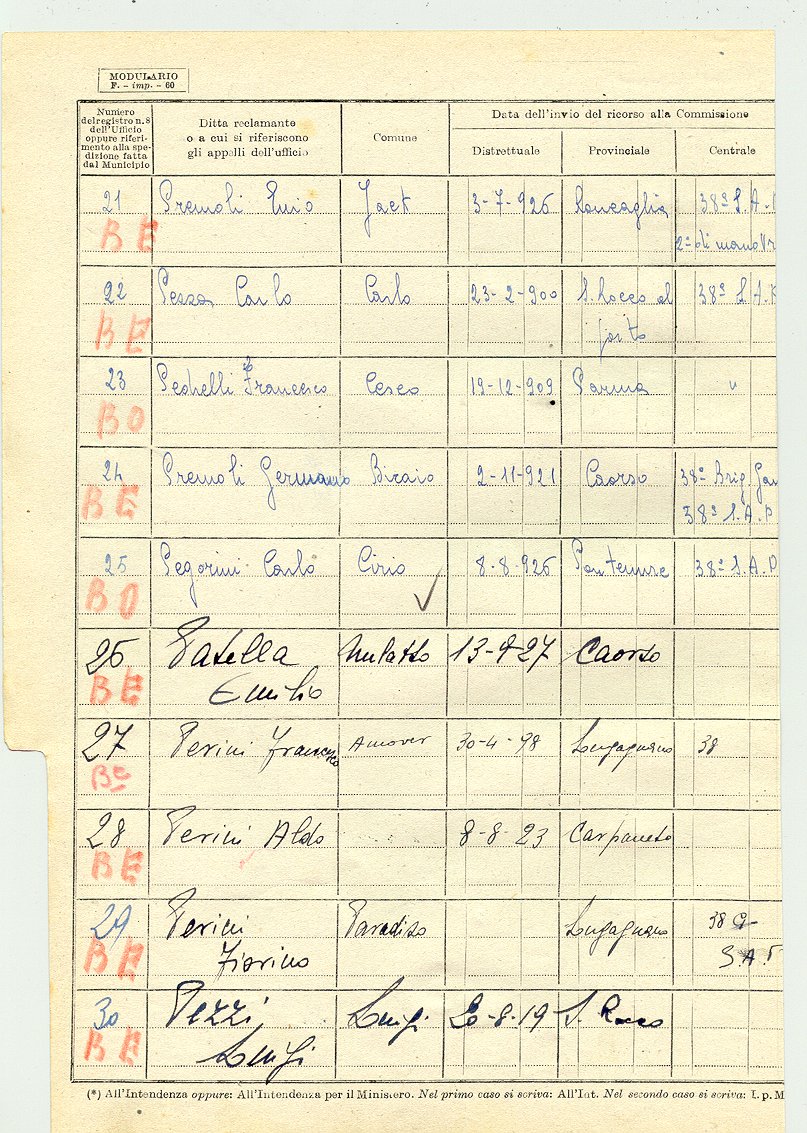 MODULARIO
F. - imp. - 60
Numero
del registro n. 8
dell'Ufficio
oppure riferi-
mento alla spe-
dizione fatta
dal Municipio
Ditta reclamante
o a cui si riferiscono
gli appalli dell'ufficio
Comune
Data dell'invio del ricorso alla Commissione
Distrettuale
Provinciale
Centrale
21 Premoli Enio Jack 3-7-926 Roncaglia 38ª S.A.P
BE 2ª di manovr
22 Pezza Carlo Carlo 23-2-900 S. Rocco al 38ª S.A.P
BE porto
23 Pedrelli Francesco Cesco 19-12-909 Parma "
BO
24 Premoli Germano Biraio 2-11-921 Caorso 38ª Brig. Gar
BE 38ª S.A.P
25 Pegorini Carlo Cirio 8-8-926 Pontenure 38ª S.A.P
BO
26 Patella Mulatto 13-9-27 Caorso
BE Emilio
27 Perini Francesco Amover 30-4-98 Lugagnano 38
Be
28 Perini Aldo 8-8-23 Carpaneto
BE
29 Perini Paradiso Lugagnano 38
BE Fiorino S.A.P
30 Pezzi Luigi 20-8-19 S. Rocco
BE Luigi
(*) All'Intendenza oppure: All'Intendenza per il Ministero. Nel primo caso si scriva: All'Int. Nel secondo caso si scriva: I. p. M